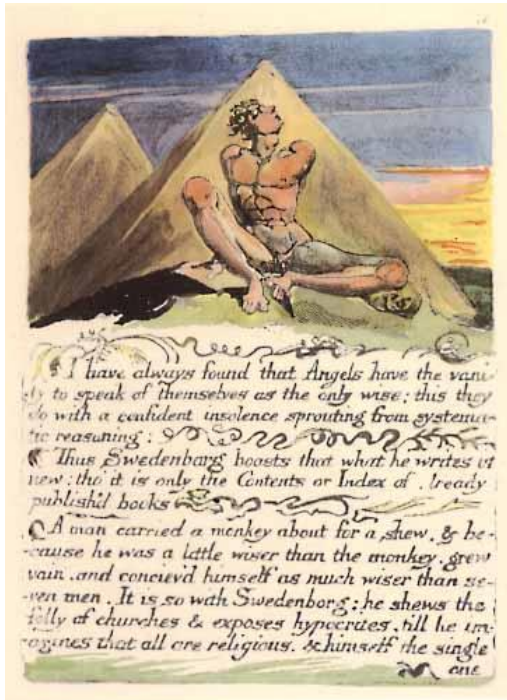 I have always found that Angels have the vani-
ty to speak of themselves as the only wise; this they
do with a confident insolence sprouting from systema-
tic reasoning:
Thus Swedenborg boasts that what he writes is
new; tho' it is only the Contents or Index of already
publish'd books
A man carried a monkey about for a shew, & be-
-cause he was a little wiser than the monkey, grew
vain, and conciev'd himself as much wiser than se-
-ven men. It is so with Swedenborg; he shews the
folly of churches & exposes hypocrites, till he im-
-agines that all are religious, & himself the single
one